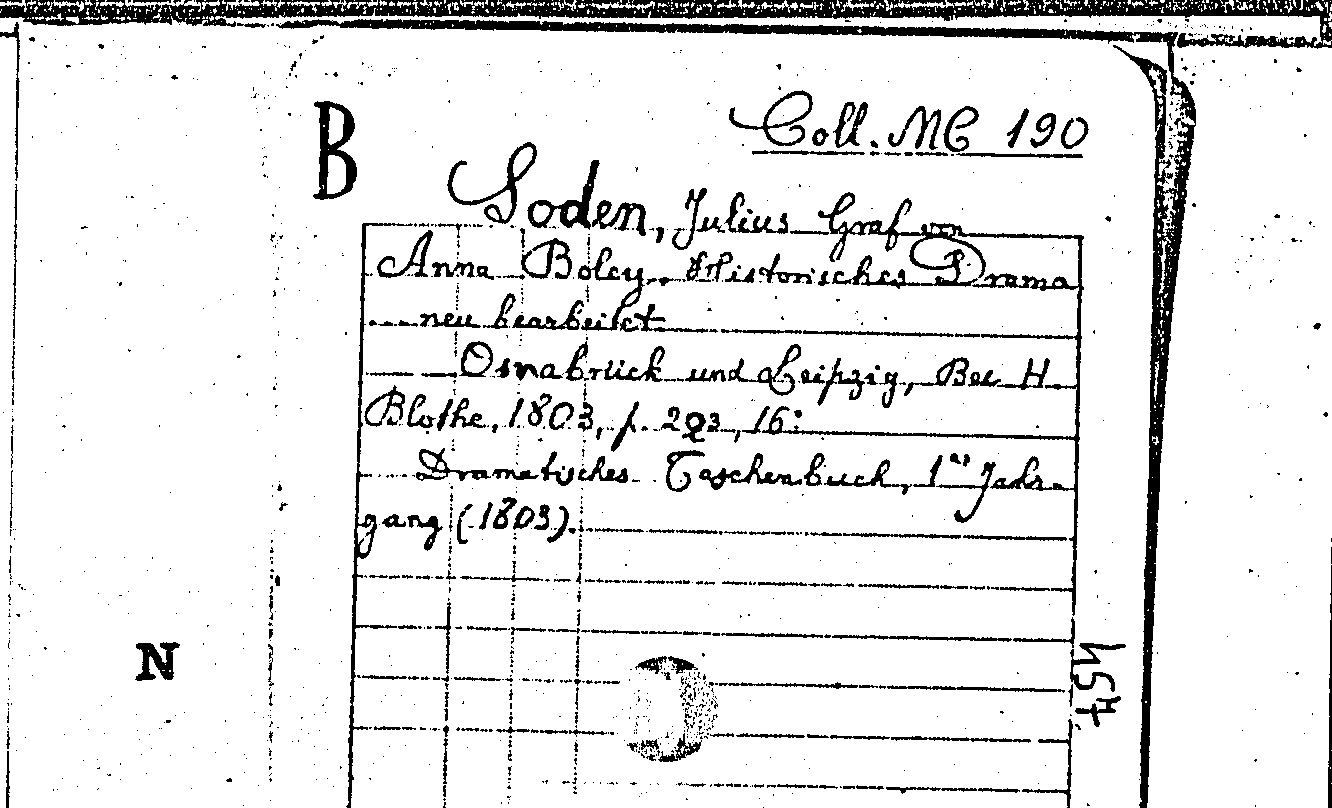 B
Coll. MC 190
Soden, Julius Graf von
Anna Boley. Historisches Drama
... neu bearbeitet
Osnabrück und Leipzig, Bei H.
Blothe, 1803, p. 293, 16:
Dramatisches Taschenbuch, 1er Jahr-
gang (1803).
N
454